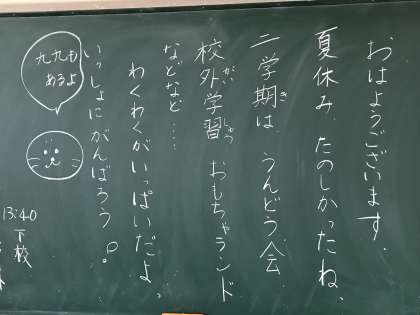 おはようございます。
夏休み たのしかったね、
二学期は うんどう会
校外学習 おもちゃランド
などなど・・・
わくわくがいっぱいだよ。
いっしょにがんばろう。
九九も
あるよ
13:40
下校